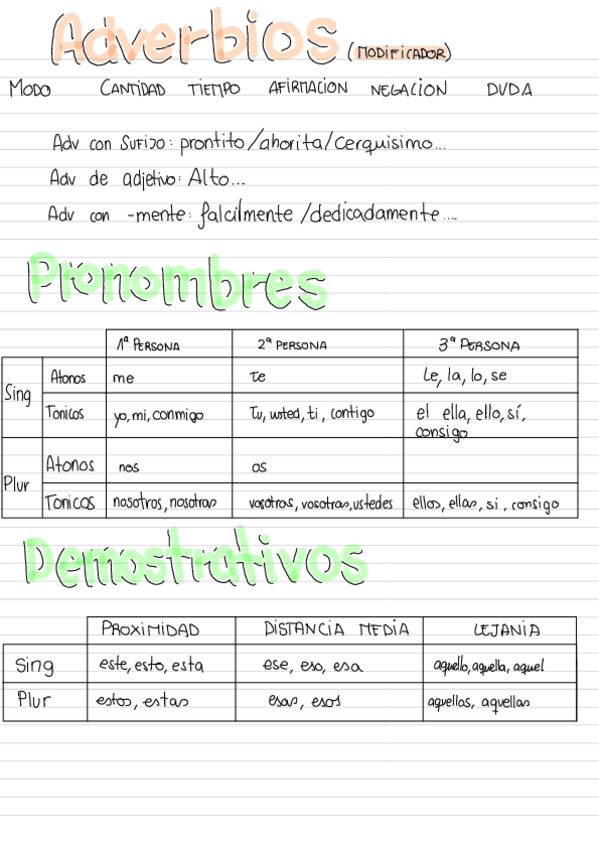 Adverbios (MODIFICADOR)
MODO CANTIDAD TIEMPO AFIRMACION NEGACION DUDA
Adv con SUFIJO: prontito/ahorita/cerquisimo...
Adv de adjetivo: Alto...
Adv con -mente: falcilmente/dedicadamente....
Pronombres
1ª PERSONA 2ª PERSONA 3ª PERSONA
Sing Atonos me te Le, la, lo, se
Tonicos yo, mi, conmigo Tu, usted, ti, contigo el ella, ello, sí, consigo
Plur Atonos nos os
Tonicos nosotros, nosotras vosotros, vosotras, ustedes ellos, ellas, si, consigo
Demostrativos
PROXIMIDAD DISTANCIA MEDIA LEJANIA
Sing este, esto, esta ese, eso, esa aquello, aquella, aquel
Plur estos, estas esas, esos aquellos, aquellas